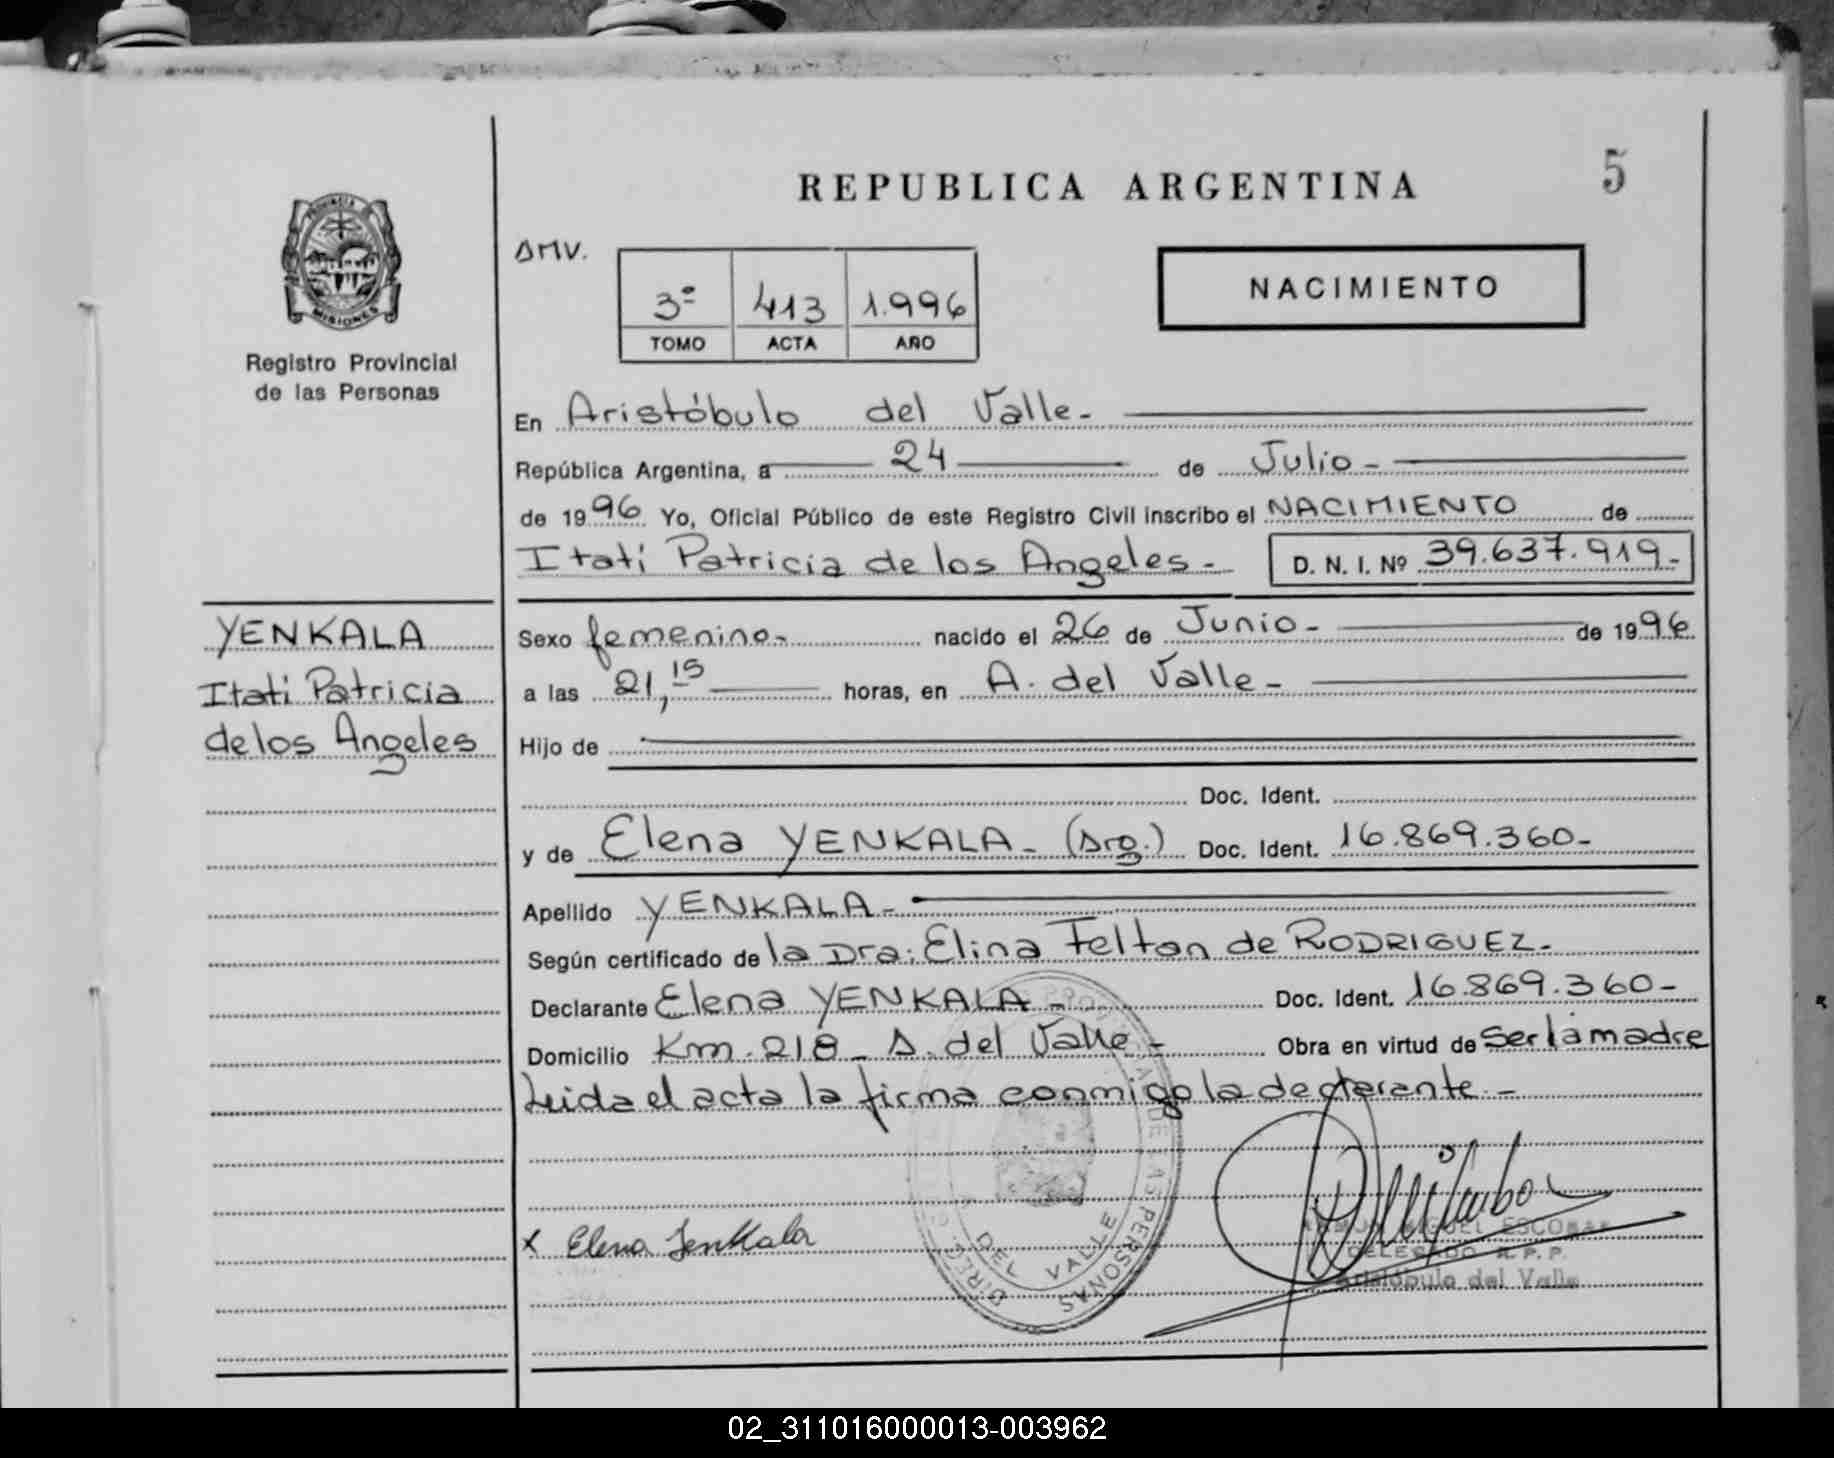 REPUBLICA ARGENTINA
5
PROVINCIA DE
MISIONES
Registro Provincial
de las Personas
AMV.
3º 413 1.996
TOMO ACTA AÑO
NACIMIENTO
En Aristóbulo del Valle-
República Argentina, a 24 de Julio-
de 1996 Yo, Oficial Público de este Registro Civil inscribo el NACIMIENTO de
Itati Patricia de los Angeles- D. N. I. Nº 39.637.919-
YENKALA
Itati Patricia
de los Angeles
Sexo femenino- nacido el 26 de Junio- de 1996
a las 21,15 horas, en A. del Valle-
Hijo de
Doc. Ident.
y de Elena YENKALA- (Arg.) Doc. Ident. 16.869.360-
Apellido YENKALA-
Según certificado de la Dra: Elina Felton de RODRIGUEZ-
Declarante Elena YENKALA- Doc. Ident. 16.869.360-
Domicilio Km. 218- A. del Valle- Obra en virtud de ser la madre
Leida el acta la firma conmigo la declarante-
x Elena Yenkala
DEL VALLE
DE LAS PERSONAS
MIGUEL ESCOBAR
DELEGADO R. P. P.
Aristóbulo del Valle
02_311016000013-003962